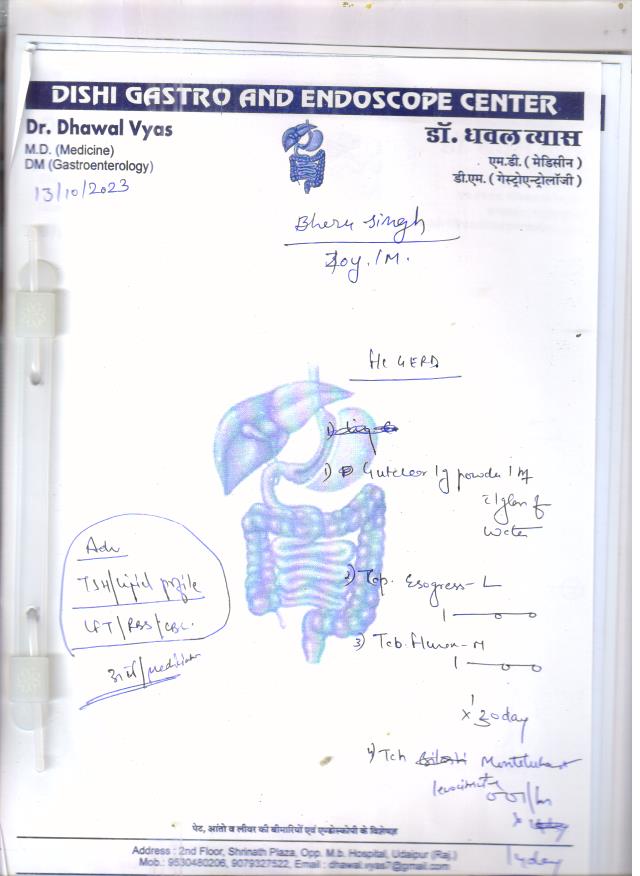 DISHI GASTRO AND ENDOSCOPE CENTER
Dr. Dhawal Vyas
M.D. (Medicine)
DM (Gastroenterology)
डॉ. धवल व्यास
एम.डी. ( मेडिसीन )
डी.एम. ( गेस्ट्रोएन्ट्रोलॉजी )
13/10/2023
Bheru Singh
/M.
GERD
1)
1) 1g powder
glass of
water
2) Cap. Esogress-L
1
3) Tab. -M
1
x 30 day
4) Montelukast
14day
Adv
TSH/Lipid profile
LFT/RBS/CBC.
पेट, आंतो व लीवर की बीमारियों एवं एण्डोस्कोपी के विशेषज्ञ
Address : 2nd Floor, Shrinath Plaza, Opp. M.b. Hospital, Udaipur (Raj.)
Mob.: 9530480206, 9079327522, Email : dhawal.vyas7@gmail.com